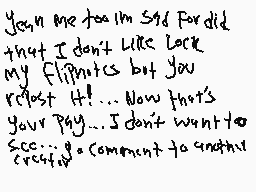 Yeah me too im sad For did
that I don't Like Lock
My Flipnotes but you
repost It!... Now that's
your pay... I don't want to
see... go comment to another
creator